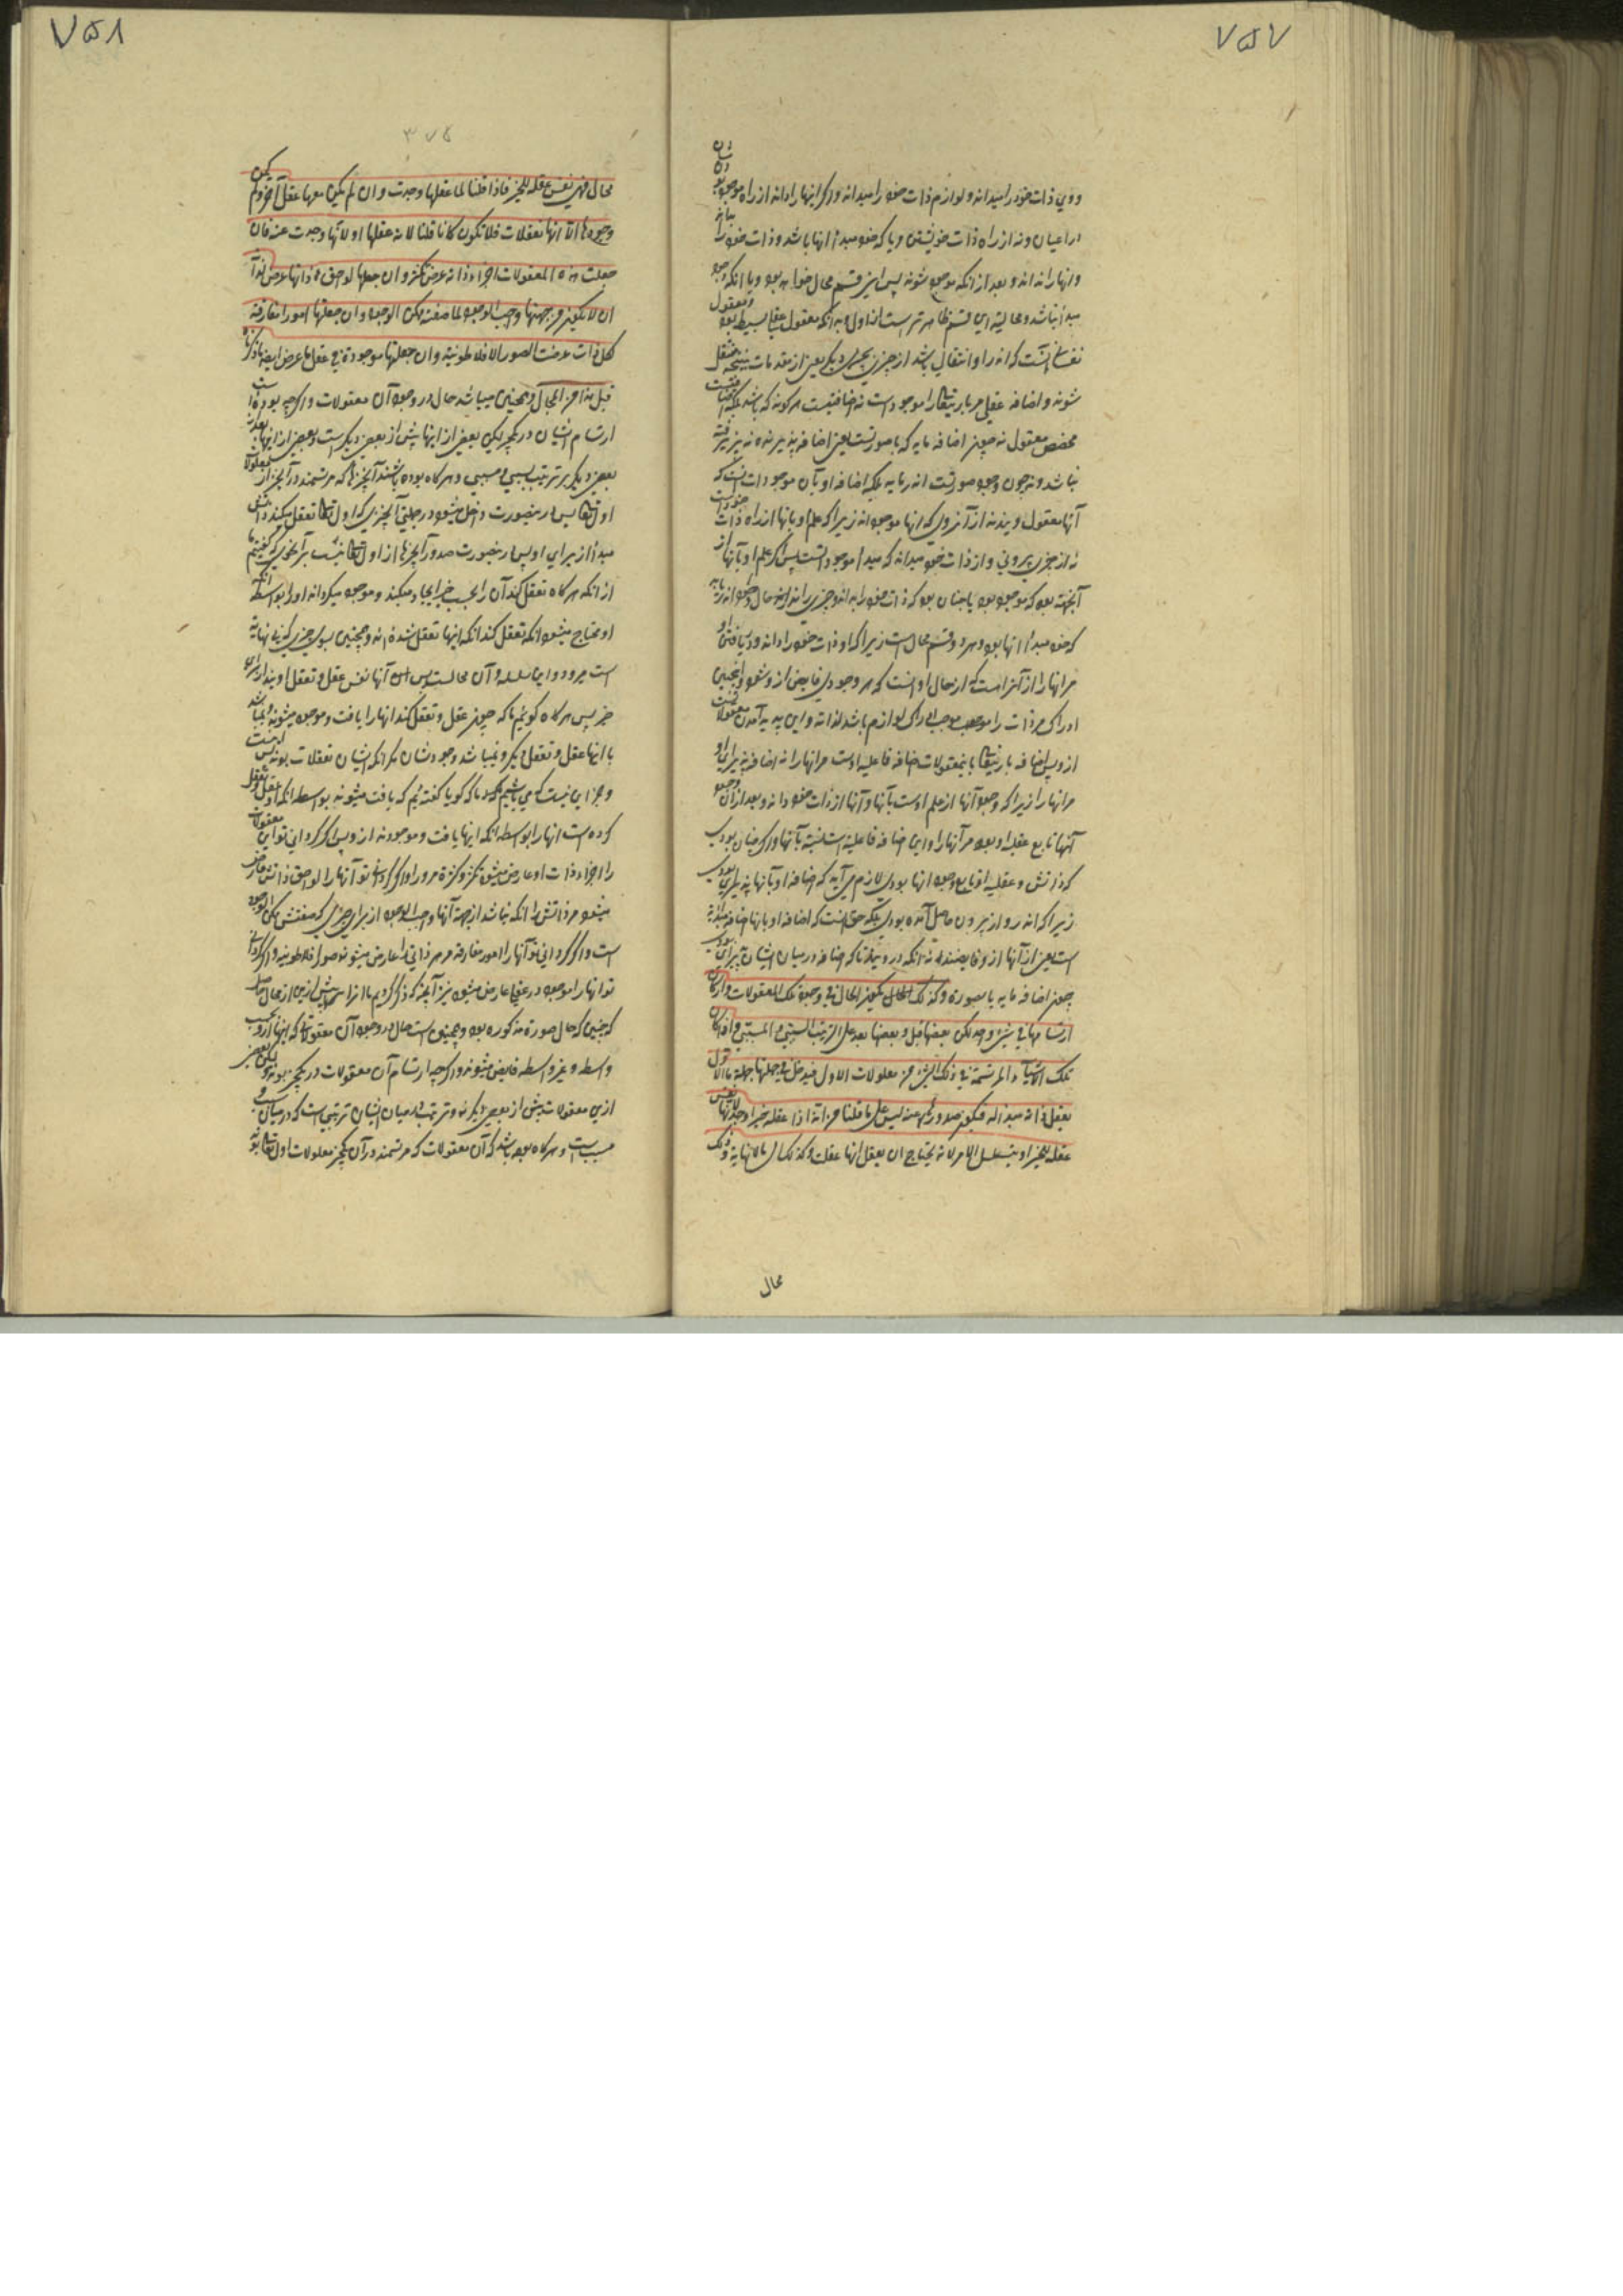 ٧٥٧
ووي ذات خود را میداند و لوازم ذات خود را میداند و اگر اینها را داند از راه موجود بودن شان
در اعیان و نه از راه ذات خویشتن و یا که خود مبدأ اینها باشد و ذات خود را
و اینها را نداند و بعد از انکه موجود شوند پس این قسم محال خواهد بود و یا انکه خود
مبدأ نباشد و محالیة این قسم ظاهرتر است از اول و بدانکه معقول عقل بسیط بود و معقول
نفسانی آنست که اندر او انتقالی باشد از چیزی بچیزی دیگر یعنی از مقدمات بنتیجه منتقل
شوند و اضافه عقلی مر باریتعالی را موجود است نه اضافتیست هر گونه که باشد بلکه اضافتیست
محض معقول نه چون اضافه مایه که با صورتست یعنی اضافه پذیرنده نه پذیرفته
نباشد و نه چون وجود صورتست اندر مایه بلکه اضافه او بآن موجودات آنست که
آنها معقول ویند نه از آنروی که اینها موجودند زیرا که علم او بآنها از راه ذات خود است
نه از چیزی بیرونی و از ذات خود میداند که مبدأ موجوداتست پس اگر علم او بآنها از
آنجهت بود که موجود بود یا چنان بود که ذات خود را بدانند و چیزی را نداند
که خود مبدأ آنها بود و هر دو قسم محال است زیرا که او ذات خود را داند و دریافتن او
مر انها را از آنراست که از حال او آنست که هر وجودی فایض از و شود و همچنین
ادراک مر ذات را موجب ادراک لوازم باشد لذاته و این پدید آمدن معقولات
از وپس اضافه باریتعالی بامعقولات اضافه فاعلیه است مر انها را نه اضافه پذیرای او
مر انها را زیرا که وجود آنها از علم اوست بآنها و آنها از ذات خود داند و بعد از آن وجود
آنها تابع عقلیه او بود مر آنها را و این اضافه فاعلیة است نسبة بآنها و اگر چنان بودی
که ذاتش و عقلیه او تابع وجود انها بودی لازم می آید که اضافه او بآنها پذیرای بودی
زیرا که اندر و از بیرون حاصل آمده بودی بلکه حق آنست که اضافه او بانها اضافه مبدائیة
است یعنی از آنها از او فایضند نه انکه در ویند تا که اضافه در میان ایشان پذیرای بودی
چون اضافه مایه با صورة و کذلک الحال یکون الحال فی وجود تلک المعقولات و ان کان
ارتسامها فی شیء واحد لکن بعضها قبل و بعضها بعد علی الترتیب السببی و المسببی و اذا کان
تلک الاشیاء المرتسمة فی ذلک الشیء من معلولات الاول فیدخل فی جملتها جملة ما الاول
یعقل ذاته مبدأ له فیکون صدورها عنه لیس علی ما قلنا من انه اذا عقله خیراً وجد لانها نفس
عقله للخیر او یتسلسل الامر لانه یحتاج ان یعقل انها عقلت و کذلک الی ما لا نهایة و ذلک
محال
٧٥٨
٣٧٥
محال فهی نفس عقله للخیر فاذا قلنا لما عقلها وجدت و ان لم یکن معها عقل آخر و لم یکن
وجودها الا انها تعقلات فلا تکون کانا قلنا لانه عقلها او لانها وجدت عنه فان
جعلت هذه المعقولات اجزاء ذاته عرض تکثر و ان جعلها لواحق ذاتها عرض لذاته
ان لا یکون من جهتها واجب الوجود لما صفته ممکن الوجود و ان جعلتها امورا مفارقة
لکل ذات عرضت الصور الافلاطونیة و ان جعلتها موجودة فی عقل ما عرض ایضا ما ذکرناه
قبل هذا من المحال و همچنین میباشد حال در وجود آن معقولات و اگر چه بوده است
ارتسام ایشان در یکچیز لیکن بعضی از اینها پیش از بعضی دیگرست و بعضی از اینها بعد از
بعضی دیگر بر ترتیب سببی و مسببی و هر گاه بوده باشند آنچیزها که مرتسمند در آنچیز از معلولات
اول تعالی پس در ینصورت داخل میشود در جملتی آنچیزی که اول تعالی تعقل میکند ذاتش
مبدأ از برای او پس در ینصورت صدور آنچیزها از اول تعالی نیست بر آنطوریکه گفتیم ما
از انکه هر گاه تعقل کند آن را بحسب خیر ایجاد میکند و موجود میگرداند او را بواسطه انکه
او محتاج میشود انکه تعقل کند انکه اینها تعقل شده اند و همچنین بسوی چیزی که بی نهایه
است میرود و این سلسله و آن محالست پس آنها نفس عقل و تعقل اویند از برای
خیر پس هر گاه گوئیم ما که چون عقل و تعقل کند انها را یافت و موجود میشوند و نمیباشد
با اینها عقل و تعقل دیگر و نمیباشد وجودشان مگر انکه ایشان تعقلات بودند پس نیست
و جز این نیست که می باشیم ما که گویا گفته ایم که یافت میشوند بواسطه انکه او عقل و تعقل
کرده است انها را بواسطه انکه اینها یافت و موجودند از وپس اگر گردانی تو این معقولات
را اجزاء ذات او عارض میشود تکثر و کثرة مر او را و اگر گردانی تو آنها را لواحق ذاتش عارض
میشود مر ذاتش را انکه نباشد از جهة آنها واجب الوجود از برای چیزی که صفتش ممکن الوجود
است و اگر گردانی تو آنها را امور مفارقه مر هر ذاتی را عارض میشوند صور افلاطونیه و اگر گردانی
تو انها را موجود در عقلی عارض میشود نیز آنچه که ذکر کردیم ما انرا پیش ازین از محال حاصل
که چنین که حال صورة مذکوره بود و همچنین است حال در وجود آن معقولات که اینها از و بحسب
واسطه و غیر واسطه فایض میشوند و اگر چه ارتسام آن معقولات در یکچیز بودند لیکن بعضی
ازین معقولات پیش از بعضی دیگرند و ترتیب در میان ایشان ترتیبی است که در میان سبب و
مسبب است و هر گاه بوده باشد که آن معقولات که مرتسمند در آن یکچیز معلولات اول تعالی بود